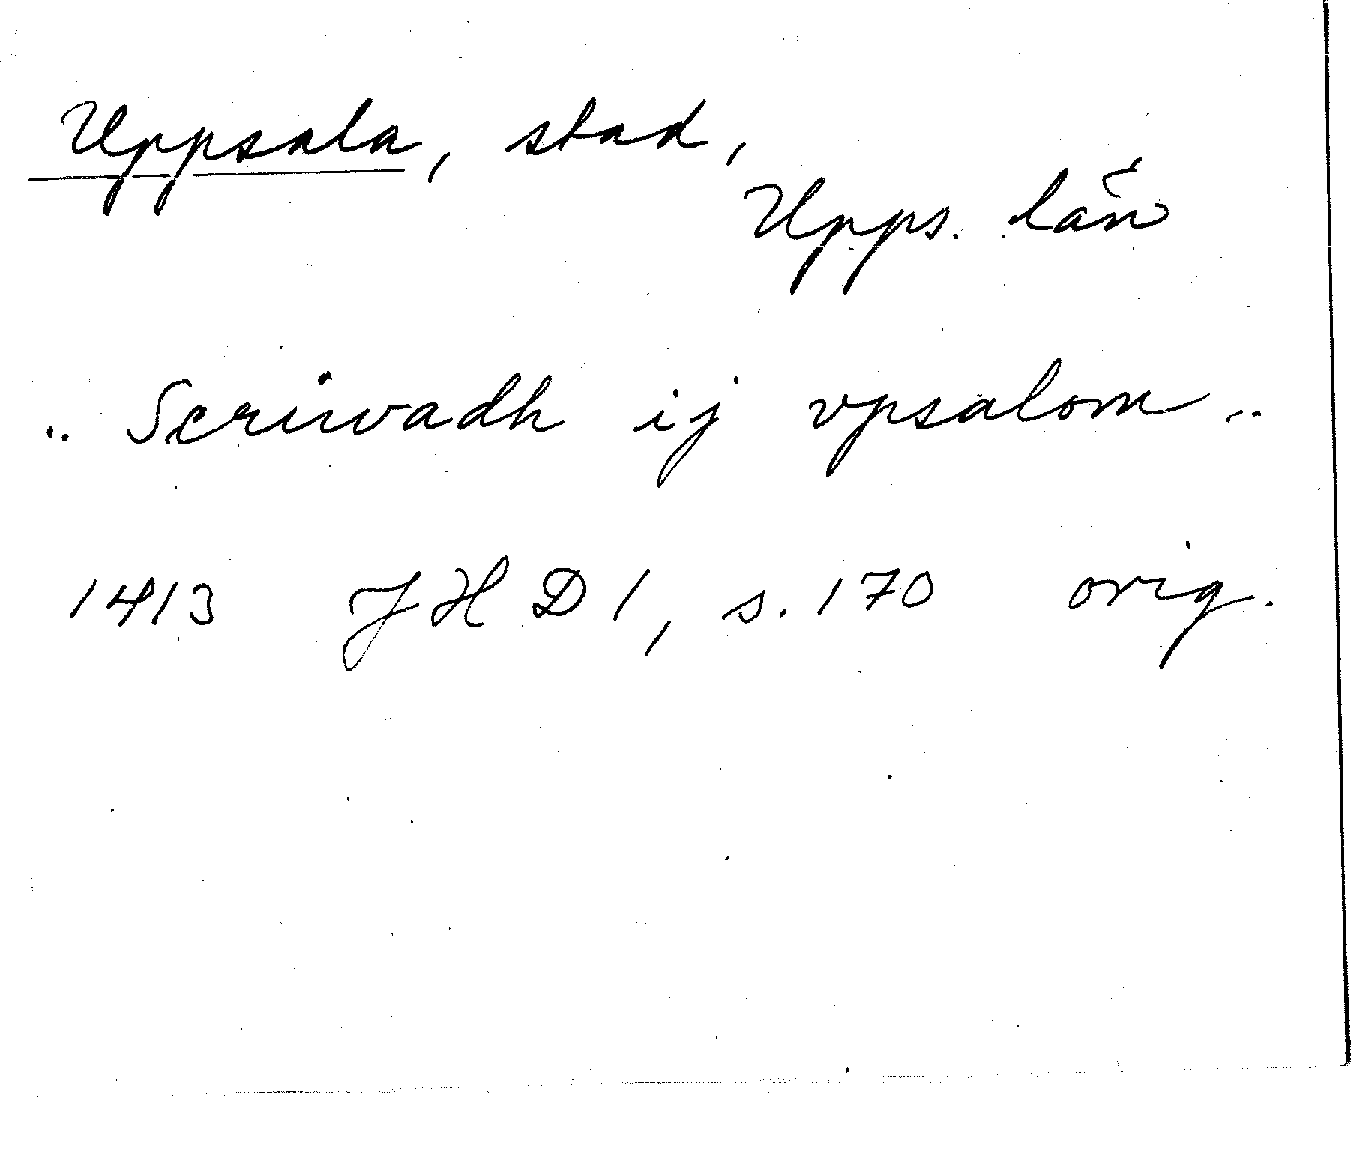 Uppsala, stad,
Upps. län
.. Scriwadh ij vpsalom ..
1413 JHD 1, s. 170 orig.